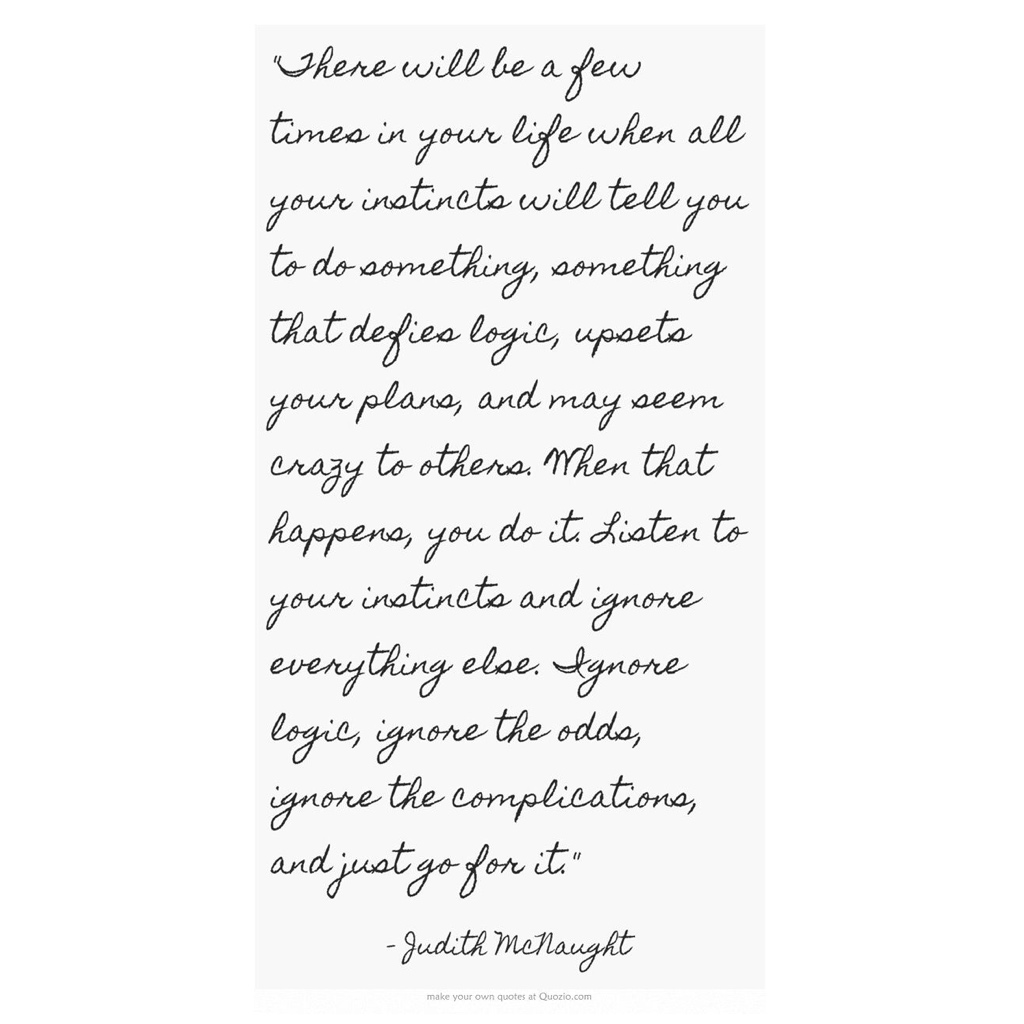 "There will be a few
times in your life when all
your instincts will tell you
to do something, something
that defies logic, upsets
your plans, and may seem
crazy to others. When that
happens, you do it. Listen to
your instincts and ignore
everything else. Ignore
logic, ignore the odds,
ignore the complications,
and just go for it."
- Judith McNaught
make your own quotes at Quozio.com